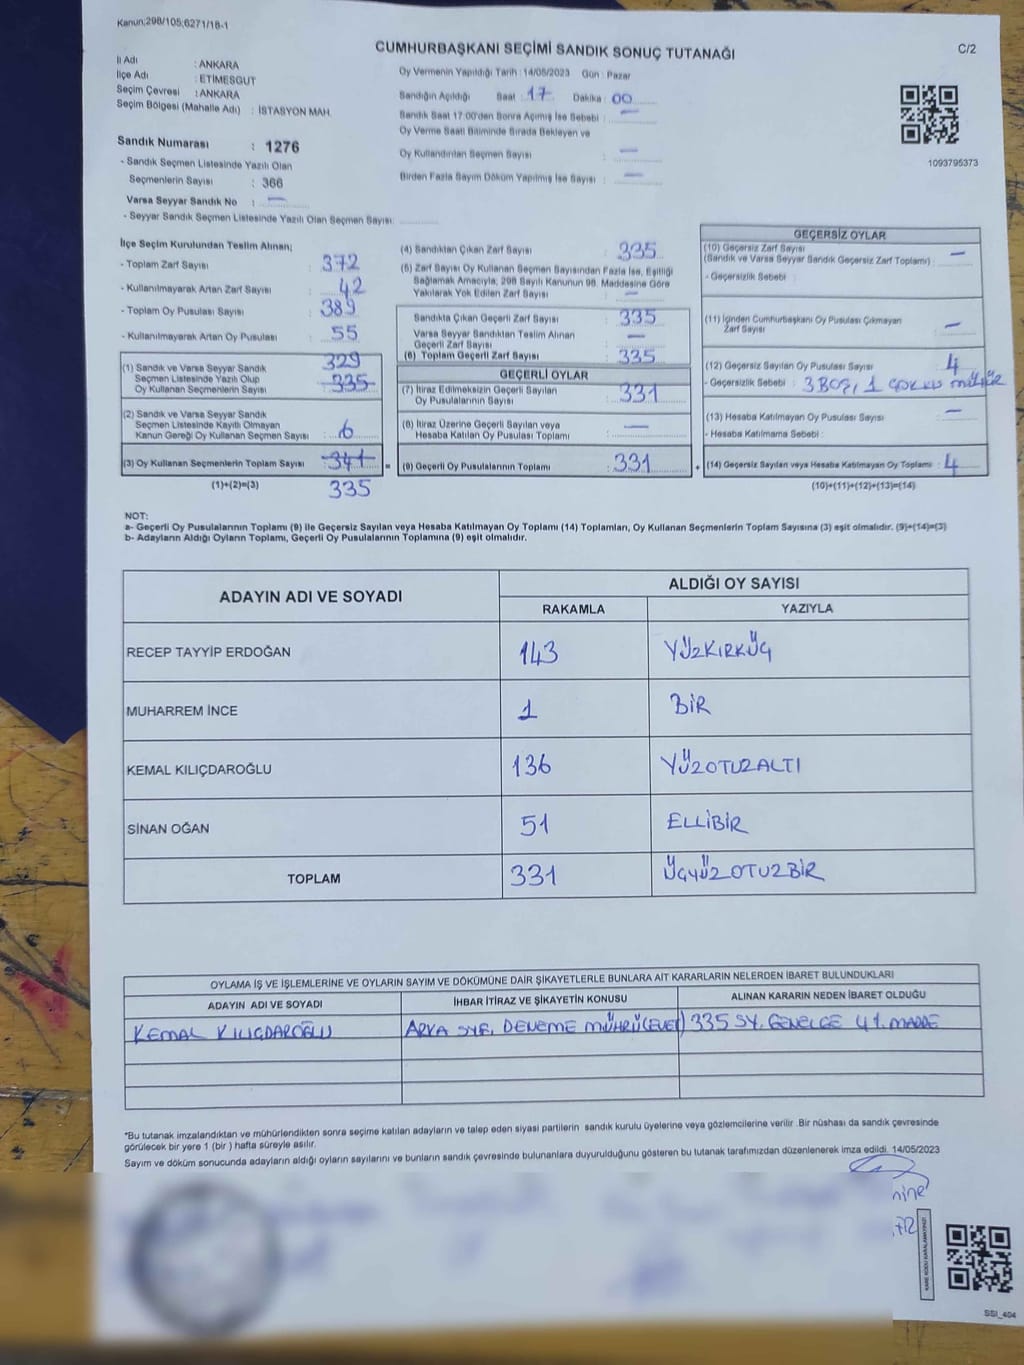 Kanun;298/105;6271/18-1
CUMHURBAŞKANI SEÇİMİ SANDIK SONUÇ TUTANAĞI
C/2
İl Adı : ANKARA
İlçe Adı : ETİMESGUT
Seçim Çevresi : ANKARA
Seçim Bölgesi (Mahalle Adı) : İSTASYON MAH.
Sandık Numarası : 1276
- Sandık Seçmen Listesinde Yazılı Olan
Seçmenlerin Sayısı : 366
Varsa Seyyar Sandık No : —
- Seyyar Sandık Seçmen Listesinde Yazılı Olan Seçmen Sayısı:
Oy Vermenin Yapıldığı Tarih : 14/05/2023 Gün : Pazar
Sandığın Açıldığı Saat : 17 Dakika : 00
Sandık Saat 17:00'den Sonra Açılmış İse Sebebi : —
Oy Verme Saati Bitiminde Sırada Bekleyen ve
Oy Kullandırılan Seçmen Sayısı : —
Birden Fazla Sayım Döküm Yapılmış İse Sayısı : —
1093795373
İlçe Seçim Kurulundan Teslim Alınan;
- Toplam Zarf Sayısı : 372
- Kullanılmayarak Artan Zarf Sayısı : 42
- Toplam Oy Pusulası Sayısı : 389
- Kullanılmayarak Artan Oy Pusulası : 55
329
(1) Sandık ve Varsa Seyyar Sandık
Seçmen Listesinde Yazılı Olup
Oy Kullanan Seçmenlerin Sayısı : 335
(2) Sandık ve Varsa Seyyar Sandık
Seçmen Listesinde Kayıtlı Olmayan
Kanun Gereği Oy Kullanan Seçmen Sayısı : 6
(3) Oy Kullanan Seçmenlerin Toplam Sayısı : 341 =
(1)+(2)=(3) 335
(4) Sandıktan Çıkan Zarf Sayısı : 335
(5) Zarf Sayısı Oy Kullanan Seçmen Sayısından Fazla İse, Eşitliği
Sağlamak Amacıyla; 298 Sayılı Kanunun 98. Maddesine Göre
Yakılarak Yok Edilen Zarf Sayısı : —
Sandıkta Çıkan Geçerli Zarf Sayısı : 335
Varsa Seyyar Sandıktan Teslim Alınan
Geçerli Zarf Sayısı : —
(6) Toplam Geçerli Zarf Sayısı : 335
GEÇERLİ OYLAR
(7) İtiraz Edilmeksizin Geçerli Sayılan
Oy Pusulalarının Sayısı : 331
(8) İtiraz Üzerine Geçerli Sayılan veya
Hesaba Katılan Oy Pusulası Toplamı : —
(9) Geçerli Oy Pusulalarının Toplamı : 331 +
GEÇERSİZ OYLAR
(10) Geçersiz Zarf Sayısı
(Sandık ve Varsa Seyyar Sandık Geçersiz Zarf Toplamı) : —
- Geçersizlik Sebebi :
(11) İçinden Cumhurbaşkanı Oy Pusulası Çıkmayan
Zarf Sayısı : —
(12) Geçersiz Sayılan Oy Pusulası Sayısı : 4
- Geçersizlik Sebebi : 3 BOŞ, 1 ÇOKLU MÜHÜR
(13) Hesaba Katılmayan Oy Pusulası Sayısı : —
- Hesaba Katılmama Sebebi :
(14) Geçersiz Sayılan veya Hesaba Katılmayan Oy Toplamı : 4
(10)+(11)+(12)+(13)=(14)
NOT:
a- Geçerli Oy Pusulalarının Toplamı (9) ile Geçersiz Sayılan veya Hesaba Katılmayan Oy Toplamı (14) Toplamları, Oy Kullanan Seçmenlerin Toplam Sayısına (3) eşit olmalıdır. (9)+(14)=(3)
b- Adayların Aldığı Oyların Toplamı, Geçerli Oy Pusulalarının Toplamına (9) eşit olmalıdır.
ADAYIN ADI VE SOYADI
ALDIĞI OY SAYISI
RAKAMLA YAZIYLA
RECEP TAYYİP ERDOĞAN 143 YÜZKIRKÜÇ
MUHARREM İNCE 1 BİR
KEMAL KILIÇDAROĞLU 136 YÜZOTUZALTI
SİNAN OĞAN 51 ELLİBİR
TOPLAM 331 ÜÇYÜZOTUZBİR
OYLAMA İŞ VE İŞLEMLERİNE VE OYLARIN SAYIM VE DÖKÜMÜNE DAİR ŞİKAYETLERLE BUNLARA AİT KARARLARIN NELERDEN İBARET BULUNDUKLARI
ADAYIN ADI VE SOYADI İHBAR İTİRAZ VE ŞİKAYETİN KONUSU ALINAN KARARIN NEDEN İBARET OLDUĞU
KEMAL KILIÇDAROĞLU ARKA DENEME 335 SY. GENELGE 41. MADDE
*Bu tutanak imzalandıktan ve mühürlendikten sonra seçime katılan adayların ve talep eden siyasi partilerin sandık kurulu üyelerine veya gözlemcilerine verilir .Bir nüshası da sandık çevresinde
görülecek bir yere 1 (bir ) hafta süreyle asılır.
Sayım ve döküm sonucunda adayların aldığı oyların sayılarını ve bunların sandık çevresinde bulunanlara duyurulduğunu gösteren bu tutanak tarafımızdan düzenlenerek imza edildi. 14/05/2023
KARE KODU KARALAMAYINIZ!
SSI_404